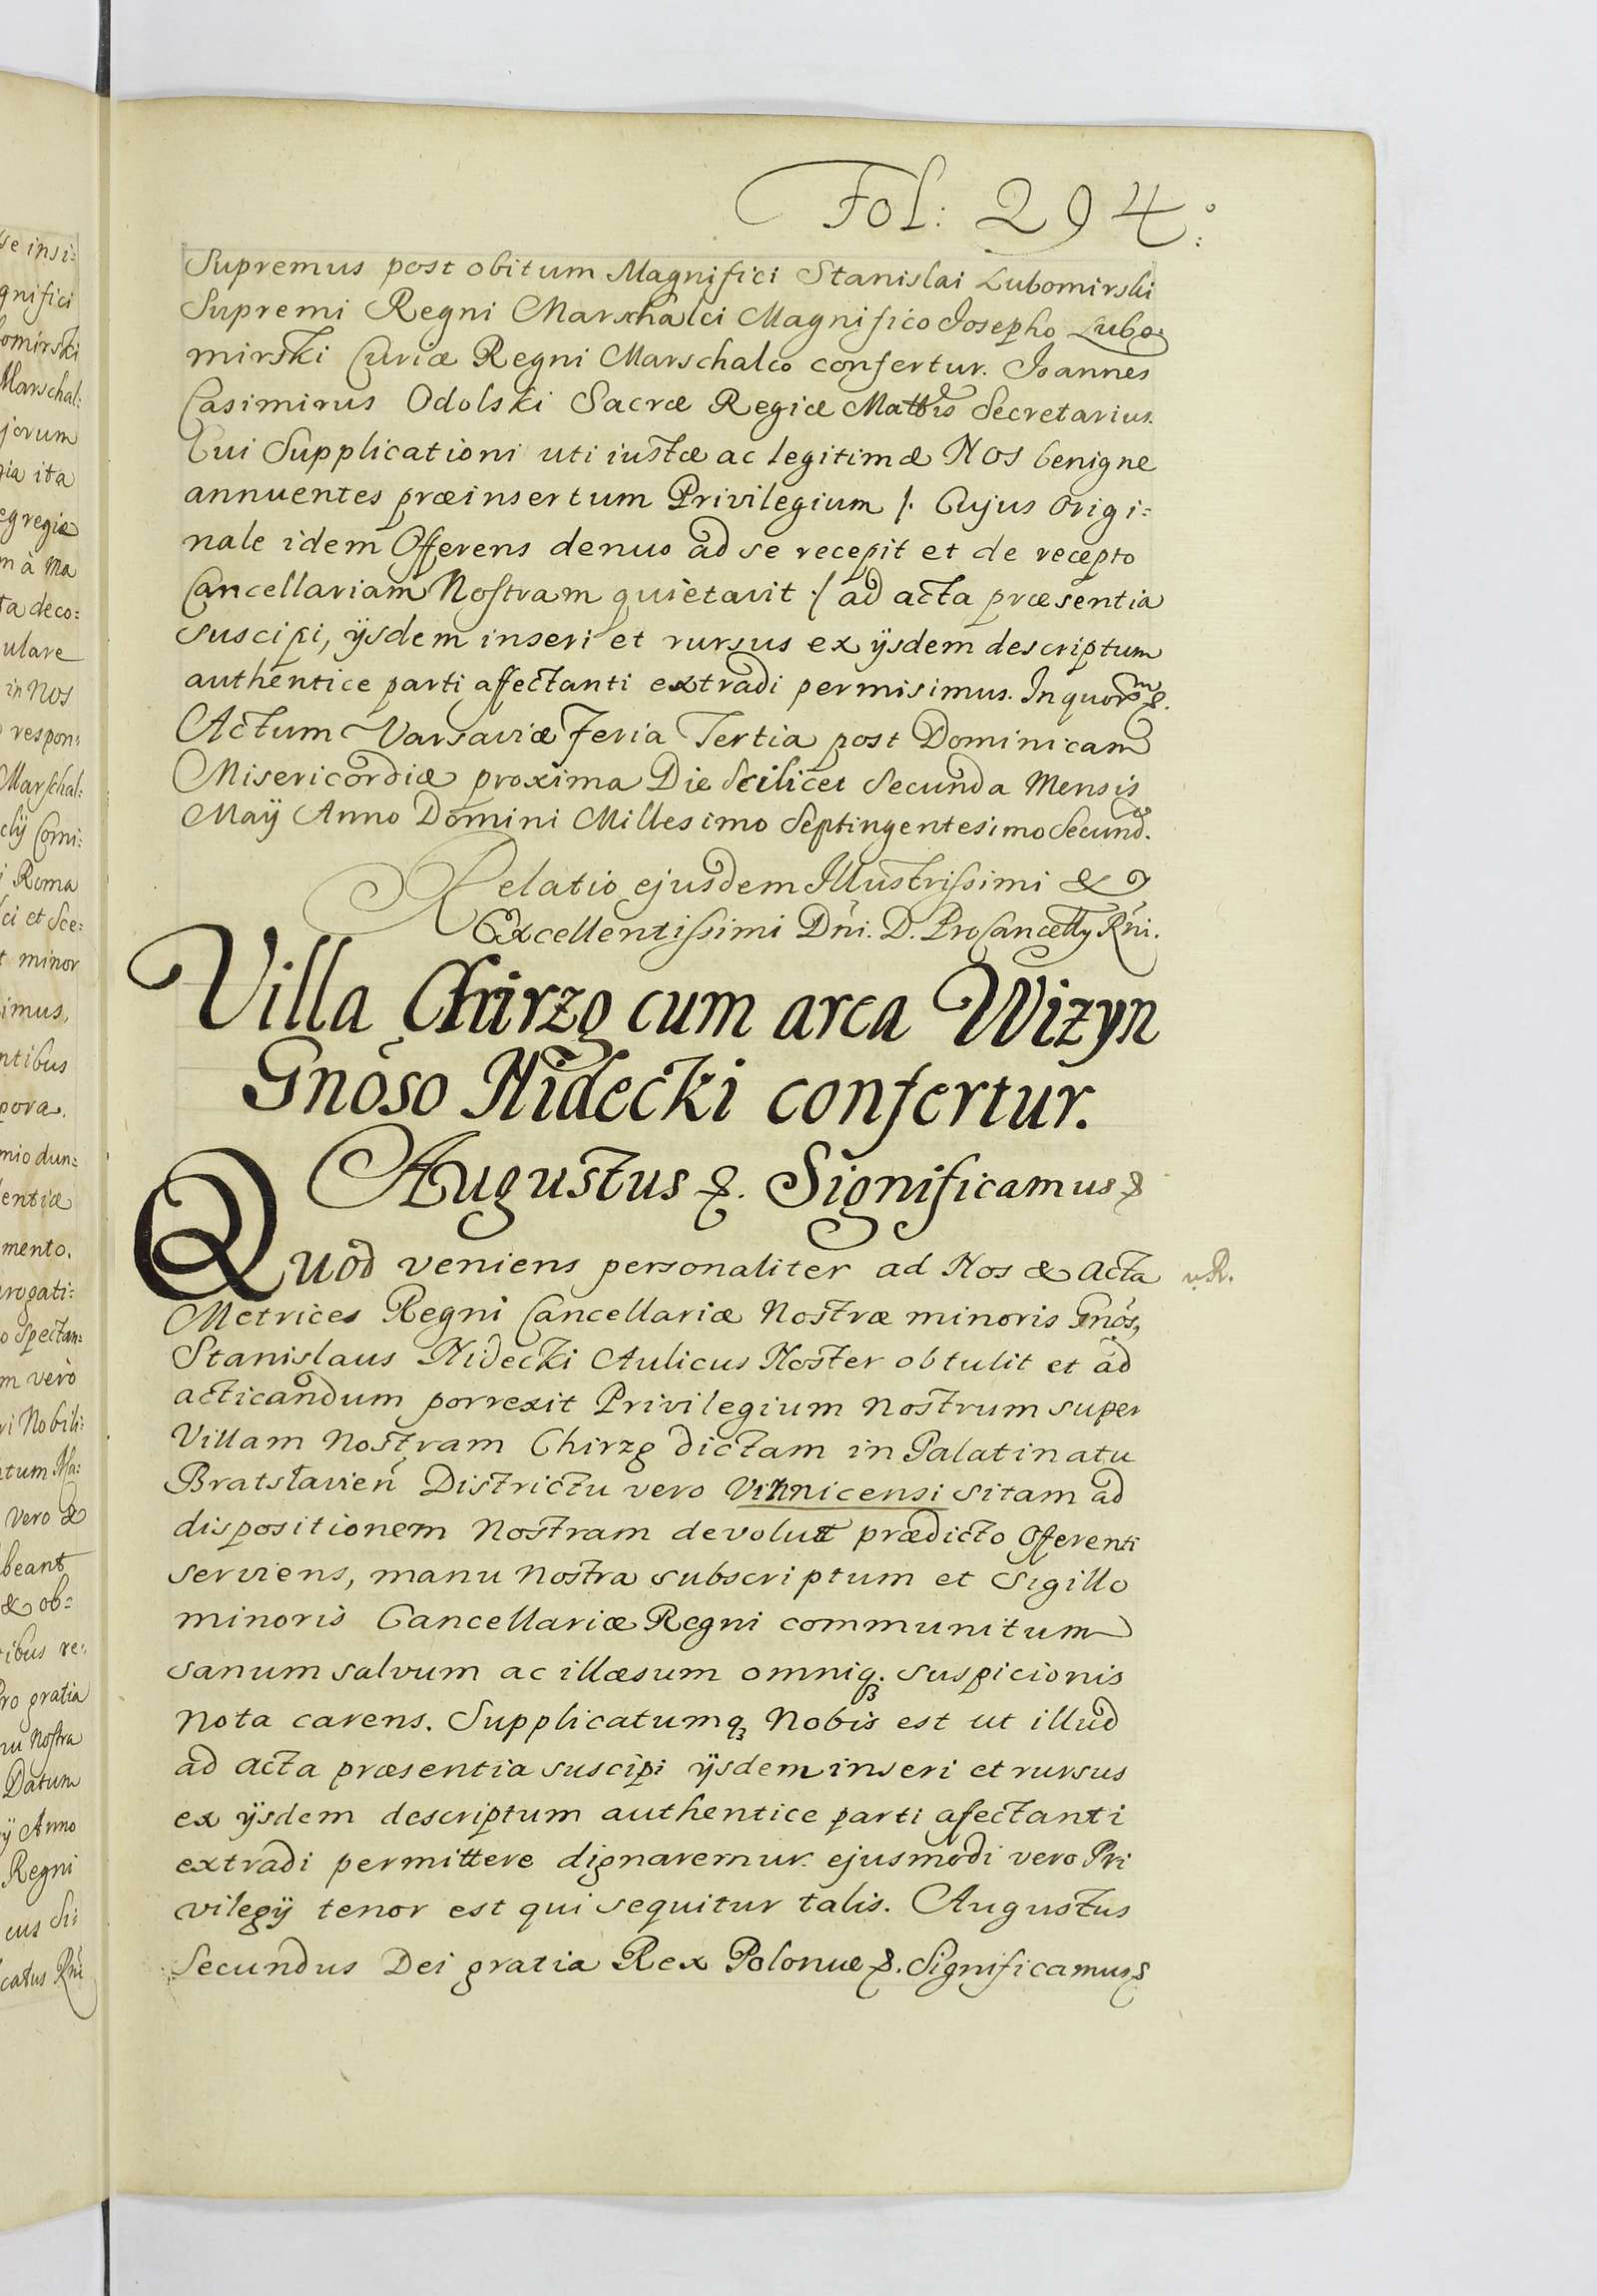 Fol: 294:
Supremus post obitum Magnifici Stanislai Lubomirski
Supremi Regni Marschalci Magnifico Josepho Lubo:
mirski Curiæ Regni Marschalco confertur. Joannes
Casimirus Odolski Sacræ Regiæ Mattis Secretarius.
Cui Supplicationi uti iustæ ac legitimæ Nos benigne
annuentes præinsertum Privilegium /. Cujus origi:
nale idem Offerens denuo ad se recepit et de recepto
Cancellariam Nostram quietavit ./ ad acta præsentia
suscipi, ijsdem inseri et rursus ex ijsdem descriptum
authentice parti affectanti extradi permisimus. In quorm &.
Actum Varsaviæ Feria Tertia post Dominicam
Misericordiæ proxima Die Scilicet Secunda Mensis
Maÿ Anno Domini Millesimo Septingentesimo Secundo.
Relatio ejusdem Illustrissimi &
Excellentissimi Dni. D. ProCancelly Rni.
Villa Chirzg cum area Wizyn
Gnoso Nidecki confertur.
Augustus &. Significamus &
Quod veniens personaliter ad Nos & Acta
Metrices Regni Cancellariæ Nostræ minoris Gnos,
Stanislaus Nidecki Aulicus Noster obtulit et ad
acticandum porrexit Privilegium nostrum super
Villam nostram Chirzg dictam in Palatinatu
Bratslavien Districtu vero Vinnicensi sitam ad
dispositionem nostram devolut prædicto Offerenti
serviens, manu nostra subscriptum et Sigillo
minoris Cancellariæ Regni communitum
sanum salvum ac illæsum omniq. suspicionis
nota carens. Supplicatumq Nobis est ut illud
ad acta præsentia suscipi ijsdem inseri et rursus
ex ijsdem descriptum authentice parti afectanti
extradi permittere dignaremur. ejusmodi vero Pri
vilegij tenor est qui sequitur talis. Augustus
Secundus Dei gratia Rex Poloniæ &. Significamus &